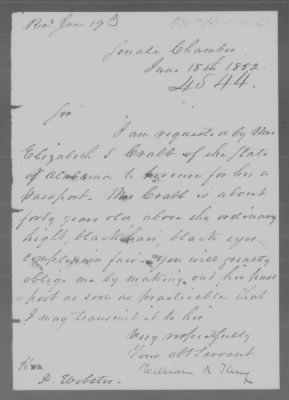 Recd June 19
Senate Chamber
June 18th 1852
4544.
Sir
I am requested by Mrs
Elizabeth S. Crabb of the State
of Alabama to procure for her a
Passport. Mrs Crabb is about
forty years old above the ordinary
hight, black hair, black eyes
complexion fair. You will greatly
oblige me by making out her pass
=port as soon as practicable that
I may transmit it to her
Very respectfully
Your Obt Servant
William R King
Hon
D. Webster.